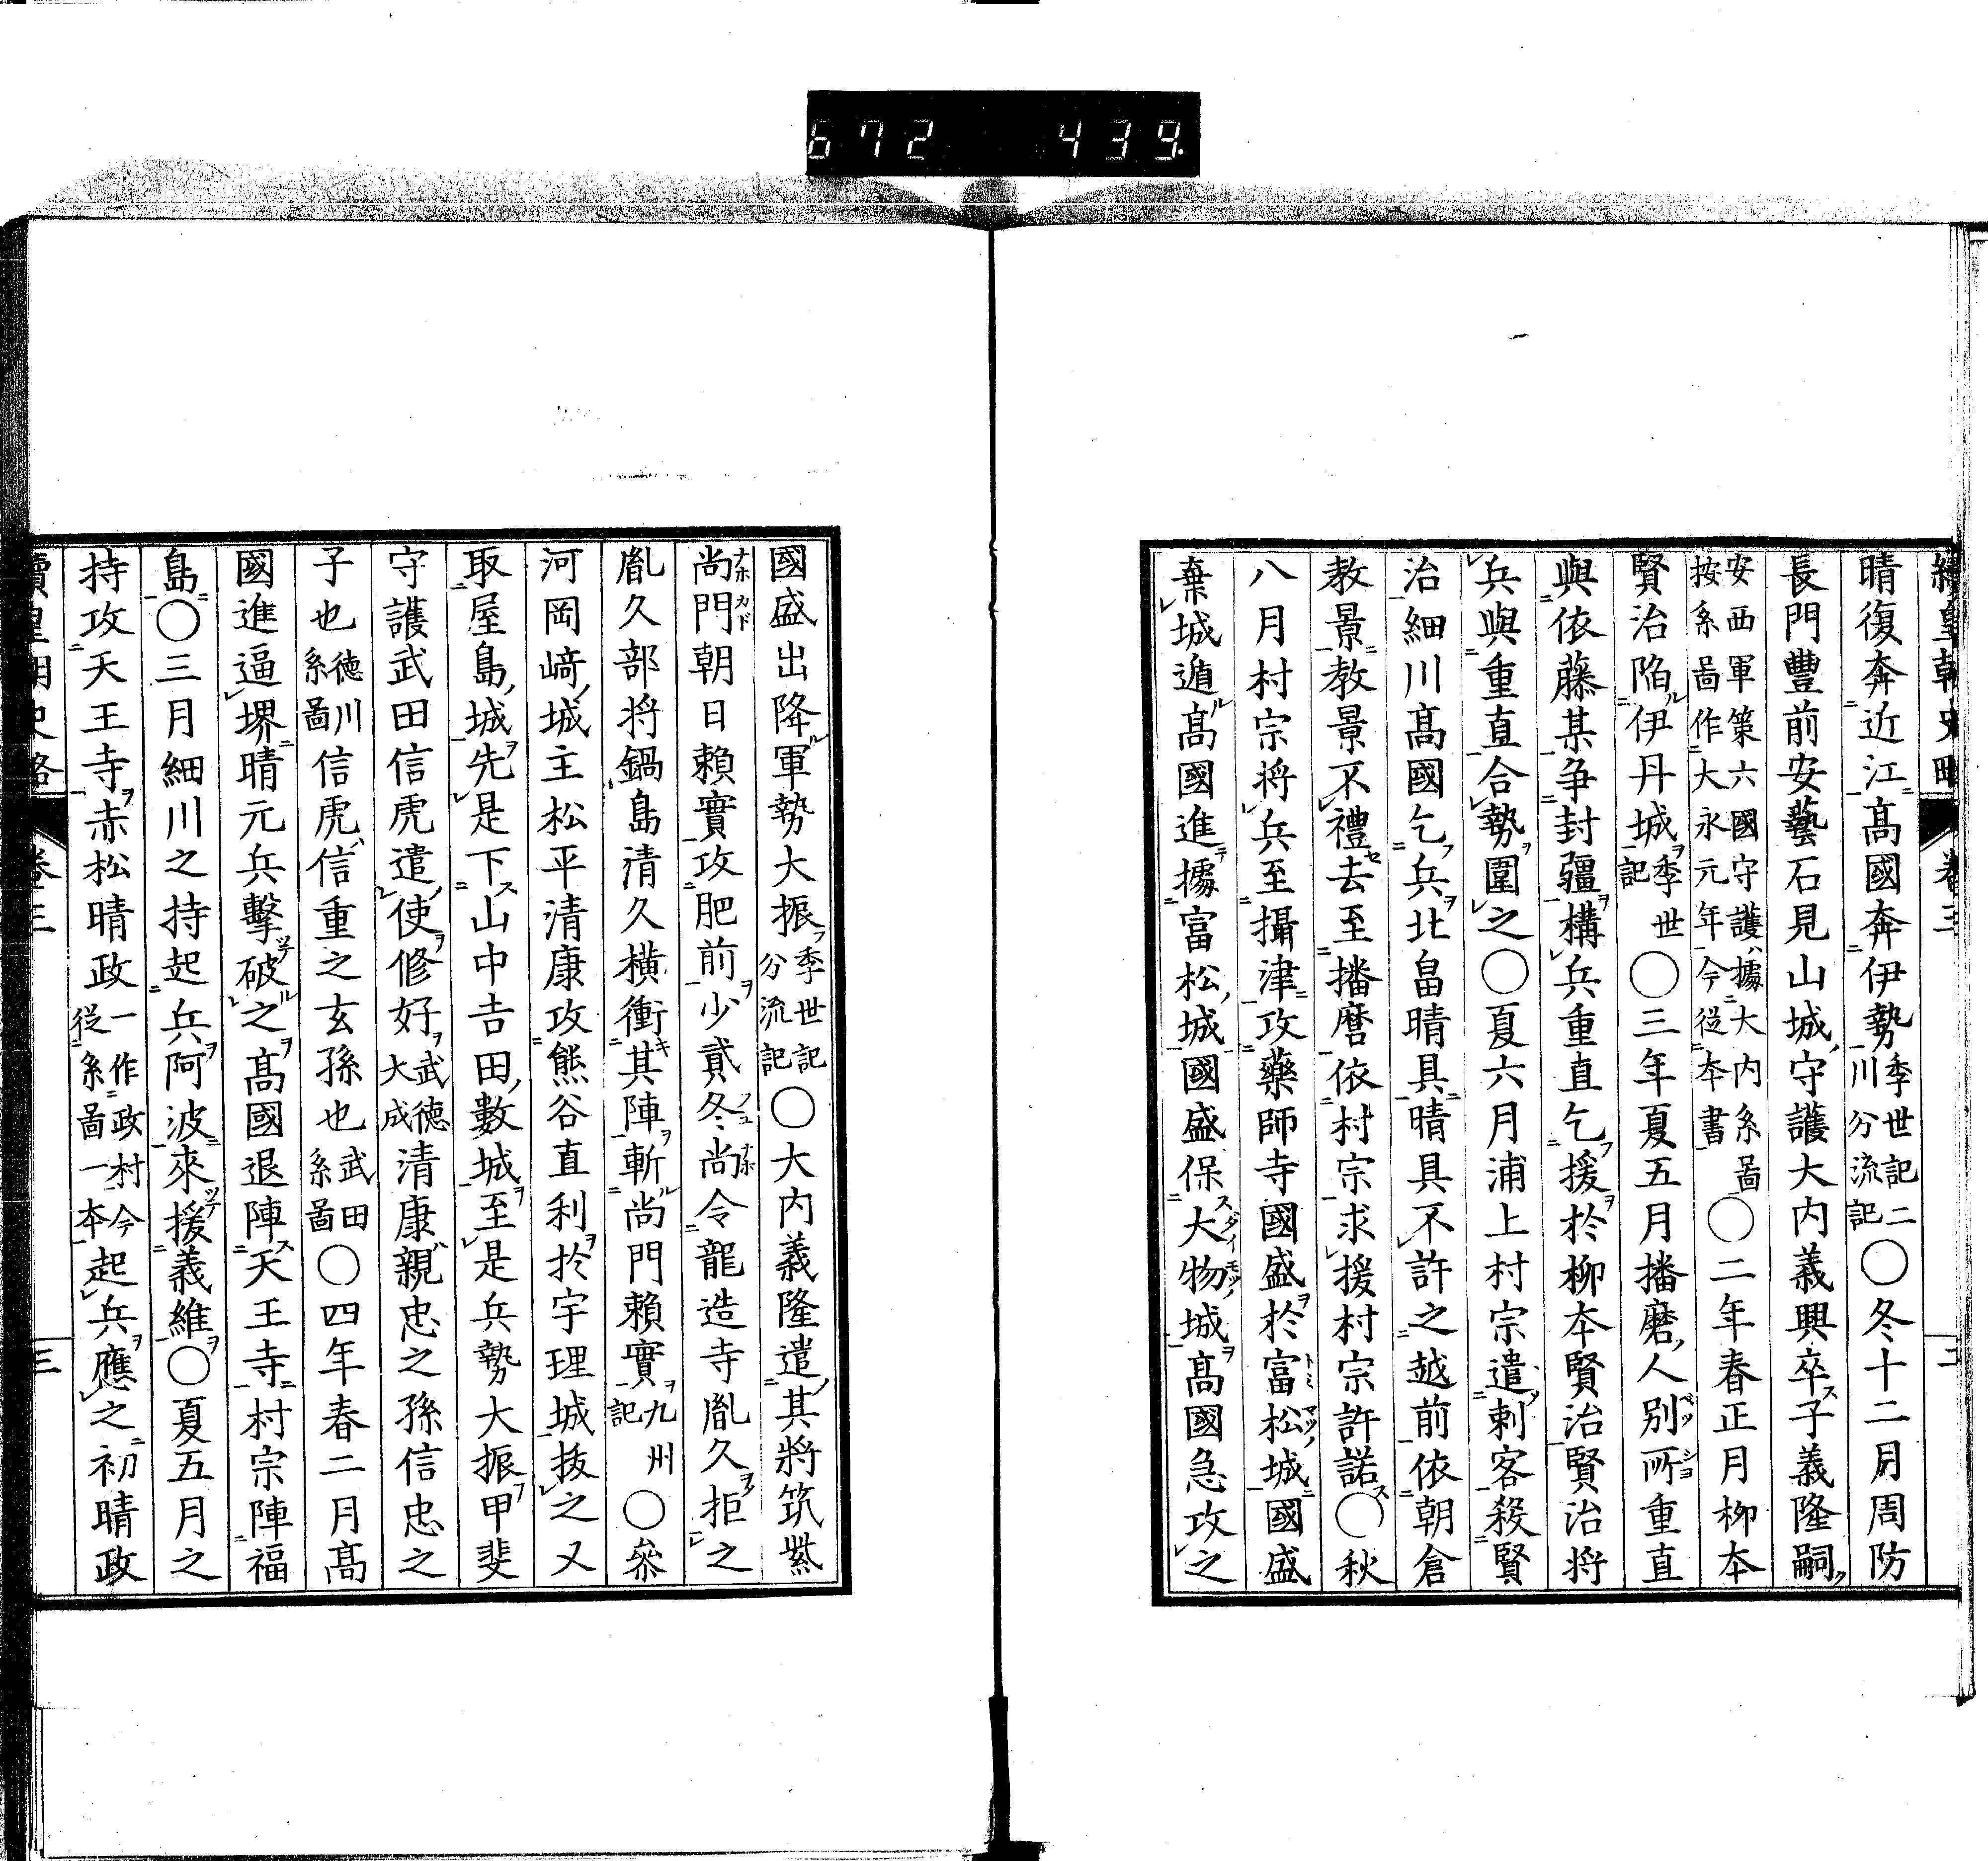 672 439
續皇朝史略 卷三 二
晴復奔近江高國奔伊勢季世記二川分流記〇冬十二月周防
長門豐前安藝石見山城守護大内義興卒子義隆嗣
安西軍策六國守護據大内系圖按系圖作大永元年今從本書〇二年春正月柳本
賢治陷伊丹城季世記〇三年夏五月播磨人別所重直
與依藤某爭封疆構兵重直乞援於柳本賢治賢治將
兵與重直合勢圍之〇夏六月浦上村宗遣刺客殺賢
治細川高國乞兵北畠晴具晴具不許之越前依朝倉
教景教景不禮去至播磨依村宗求援村宗許諾〇秋
八月村宗將兵至攝津攻藥師寺國盛於富松城國盛
棄城遁高國進據富松城國盛保大物城高國急攻之
國盛出降軍勢大振季世記分流記〇大内義隆遣其將筑紫
尚門朝日賴實攻肥前少貳冬尚令龍造寺胤久拒之
胤久部將鍋島清久橫衝其陣斬尚門賴實九州記〇參
河岡﨑城主松平清康攻熊谷直利於宇理城拔之又
取屋島城先是下山中吉田數城至是兵勢大振甲斐
守護武田信虎遣使修好武德大成清康親忠之孫信忠之
子也德川系圖信虎信重之玄孫也武田系圖〇四年春二月高
國進逼堺晴元兵擊破之高國退陣天王寺村宗陣福
島〇三月細川之持起兵阿波來援義維〇夏五月之
持攻天王寺赤松晴政一作政村今從系圖一本起兵應之初晴政
續皇朝史略 卷三 三